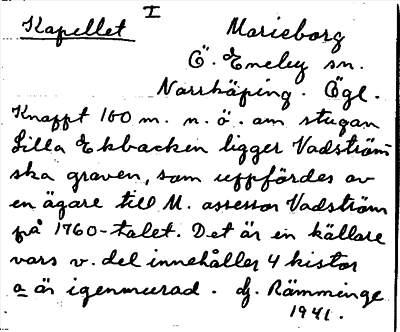 I
Kapellet Marieborg
Ö. Eneby sn.
Norrköping. Ögl.
Knappt 100 m. n. ö. om stugan
Lilla Ekbacken ligger Vadström-
ska graven, som uppfördes av
en ägare till M. assessor Vadström
på 1760-talet. Det är en källare
vars v. del innehåller 4 kistor
a är igenmurad. dj. Rämminge
1941.